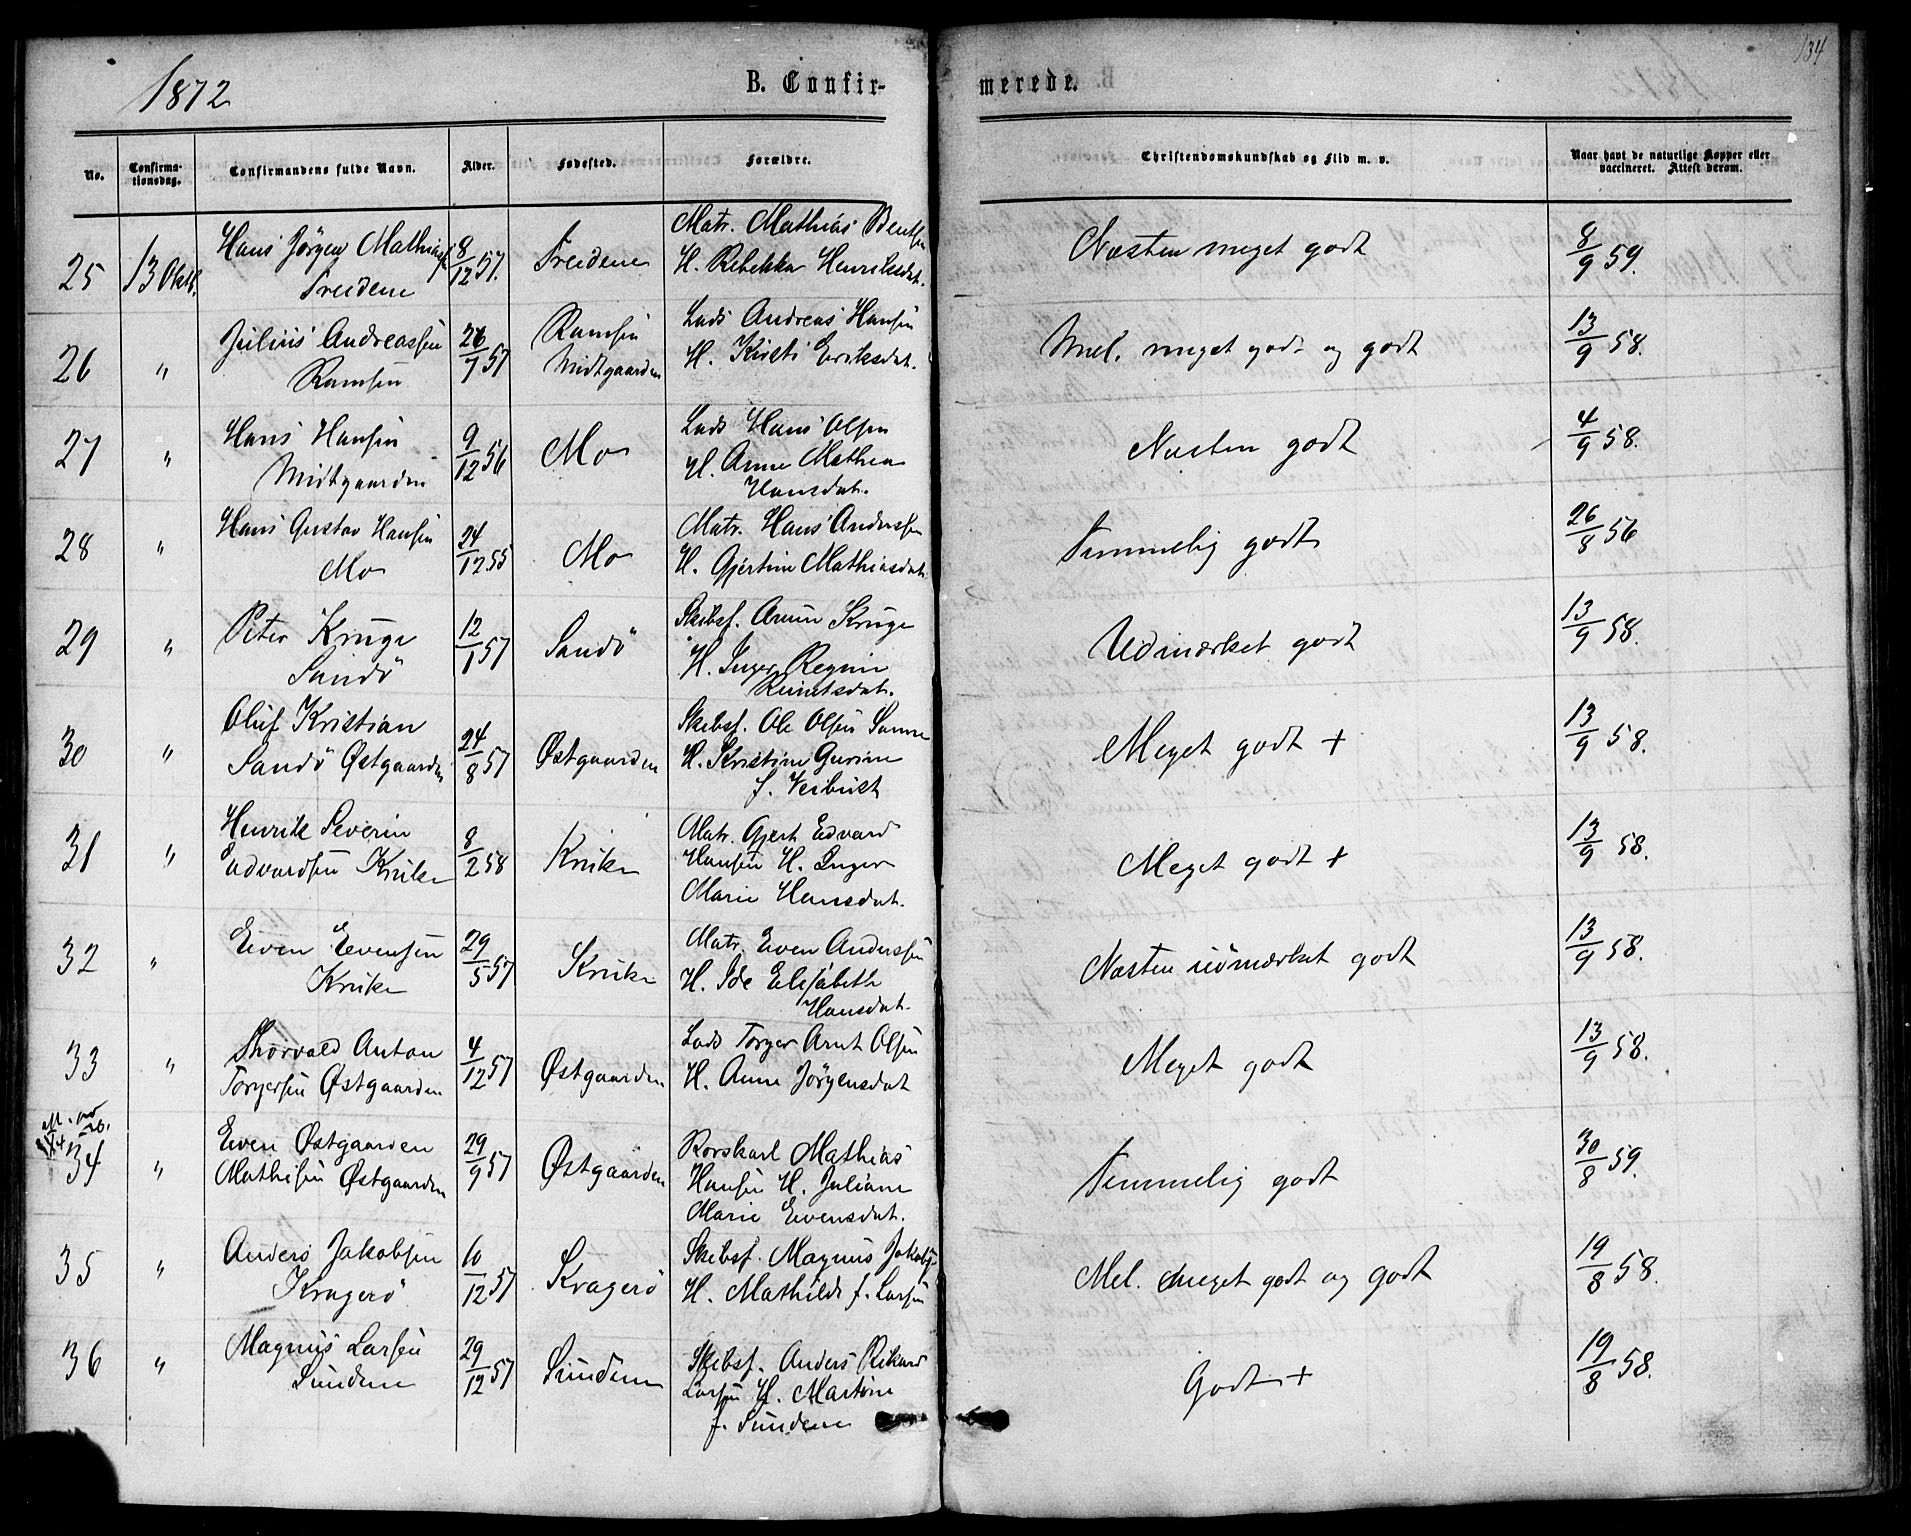 134
1872
B. Confir-
merede.
No.
Confirma-
tionsdag.
Confirmandens fulde Navn.
Alder.
Fødested.
Forældre.
Christendomskundskab og Flid m. v.
Naar havt de naturlige Kopper eller
vaccineret. Attest derom.
25 13 Oktb. Hans Jørgen Mathiassen 8/12 57. Matr. Mathias Bentsen
H. Rebekka Henriksdat. Næsten meget godt 8/9 59.
26 " Julius Andreassen 26/7 57 Ramsen Lods Andreas Hansen
Ramsen Midtgaarden H. Kirsti Eriksdat. Mel. meget godt og godt 13/9 58.
27 " Hans Hansen 9/12 56 Mo Lods Hans Olsen
Midtgaarden H. Anne Mathea
Hansdat. Næsten godt 4/9 58.
28 " Hans Gustav Hansen 24/12 55 Mo Matr. Hans Anderssen
Mo H. Gjertine Mathiasdat. Temmelig godt 26/8 56
29 " Peter Kruge 12/1 57 Sandö Skibsf. Kruge
Sandö H. Inger Regine
Udmærket godt 13/9 58.
30 " Oluf Kristian 24/8 57 Østgaarden Skibsf. Ole Olsen
Sandö Østgaarden H. Kristine Gurine
f. Meget godt + 13/9 58.
31 " Henrik Severin 8/2 58 Kruke Matr. Gjert Edvard
Edvardsen Kruke Hansen H. Inger
Marie Hansdat. Meget godt + 13/9 58.
32 " Even Evensen 29/5 57 Kruke Matr. Even Anderssen
Kruke H. Ide Elisabeth
Hansdat. Næsten udmærket godt 13/9 58.
33 " Thorvald Anton 4/12 57 Østgaarden Lods Torger Arnt Olsen
Torgersen Østgaarden H. Anne Jørgensdat Meget godt 13/9 58.
34 " Even Østgaarden 29/9 57 Østgaarden Rorskarl Mathias
Mathisen Østgaarden Hansen H. Juliane
Marie Evensdat. Temmelig godt 30/8 59.
35 " Anders Jakobsen 10/12 57 Kragerö Skibsf. Magnus Jakobs
Kragerö H. Mathilde f. Larsen Mel. meget godt og godt 19/8 58.
36 " Magnus Larsen 29/12 57 Sundene Skibsf. Anders Rikard
Sundene Larsen H. Martine
f. Sundene Godt + 19/8 58.